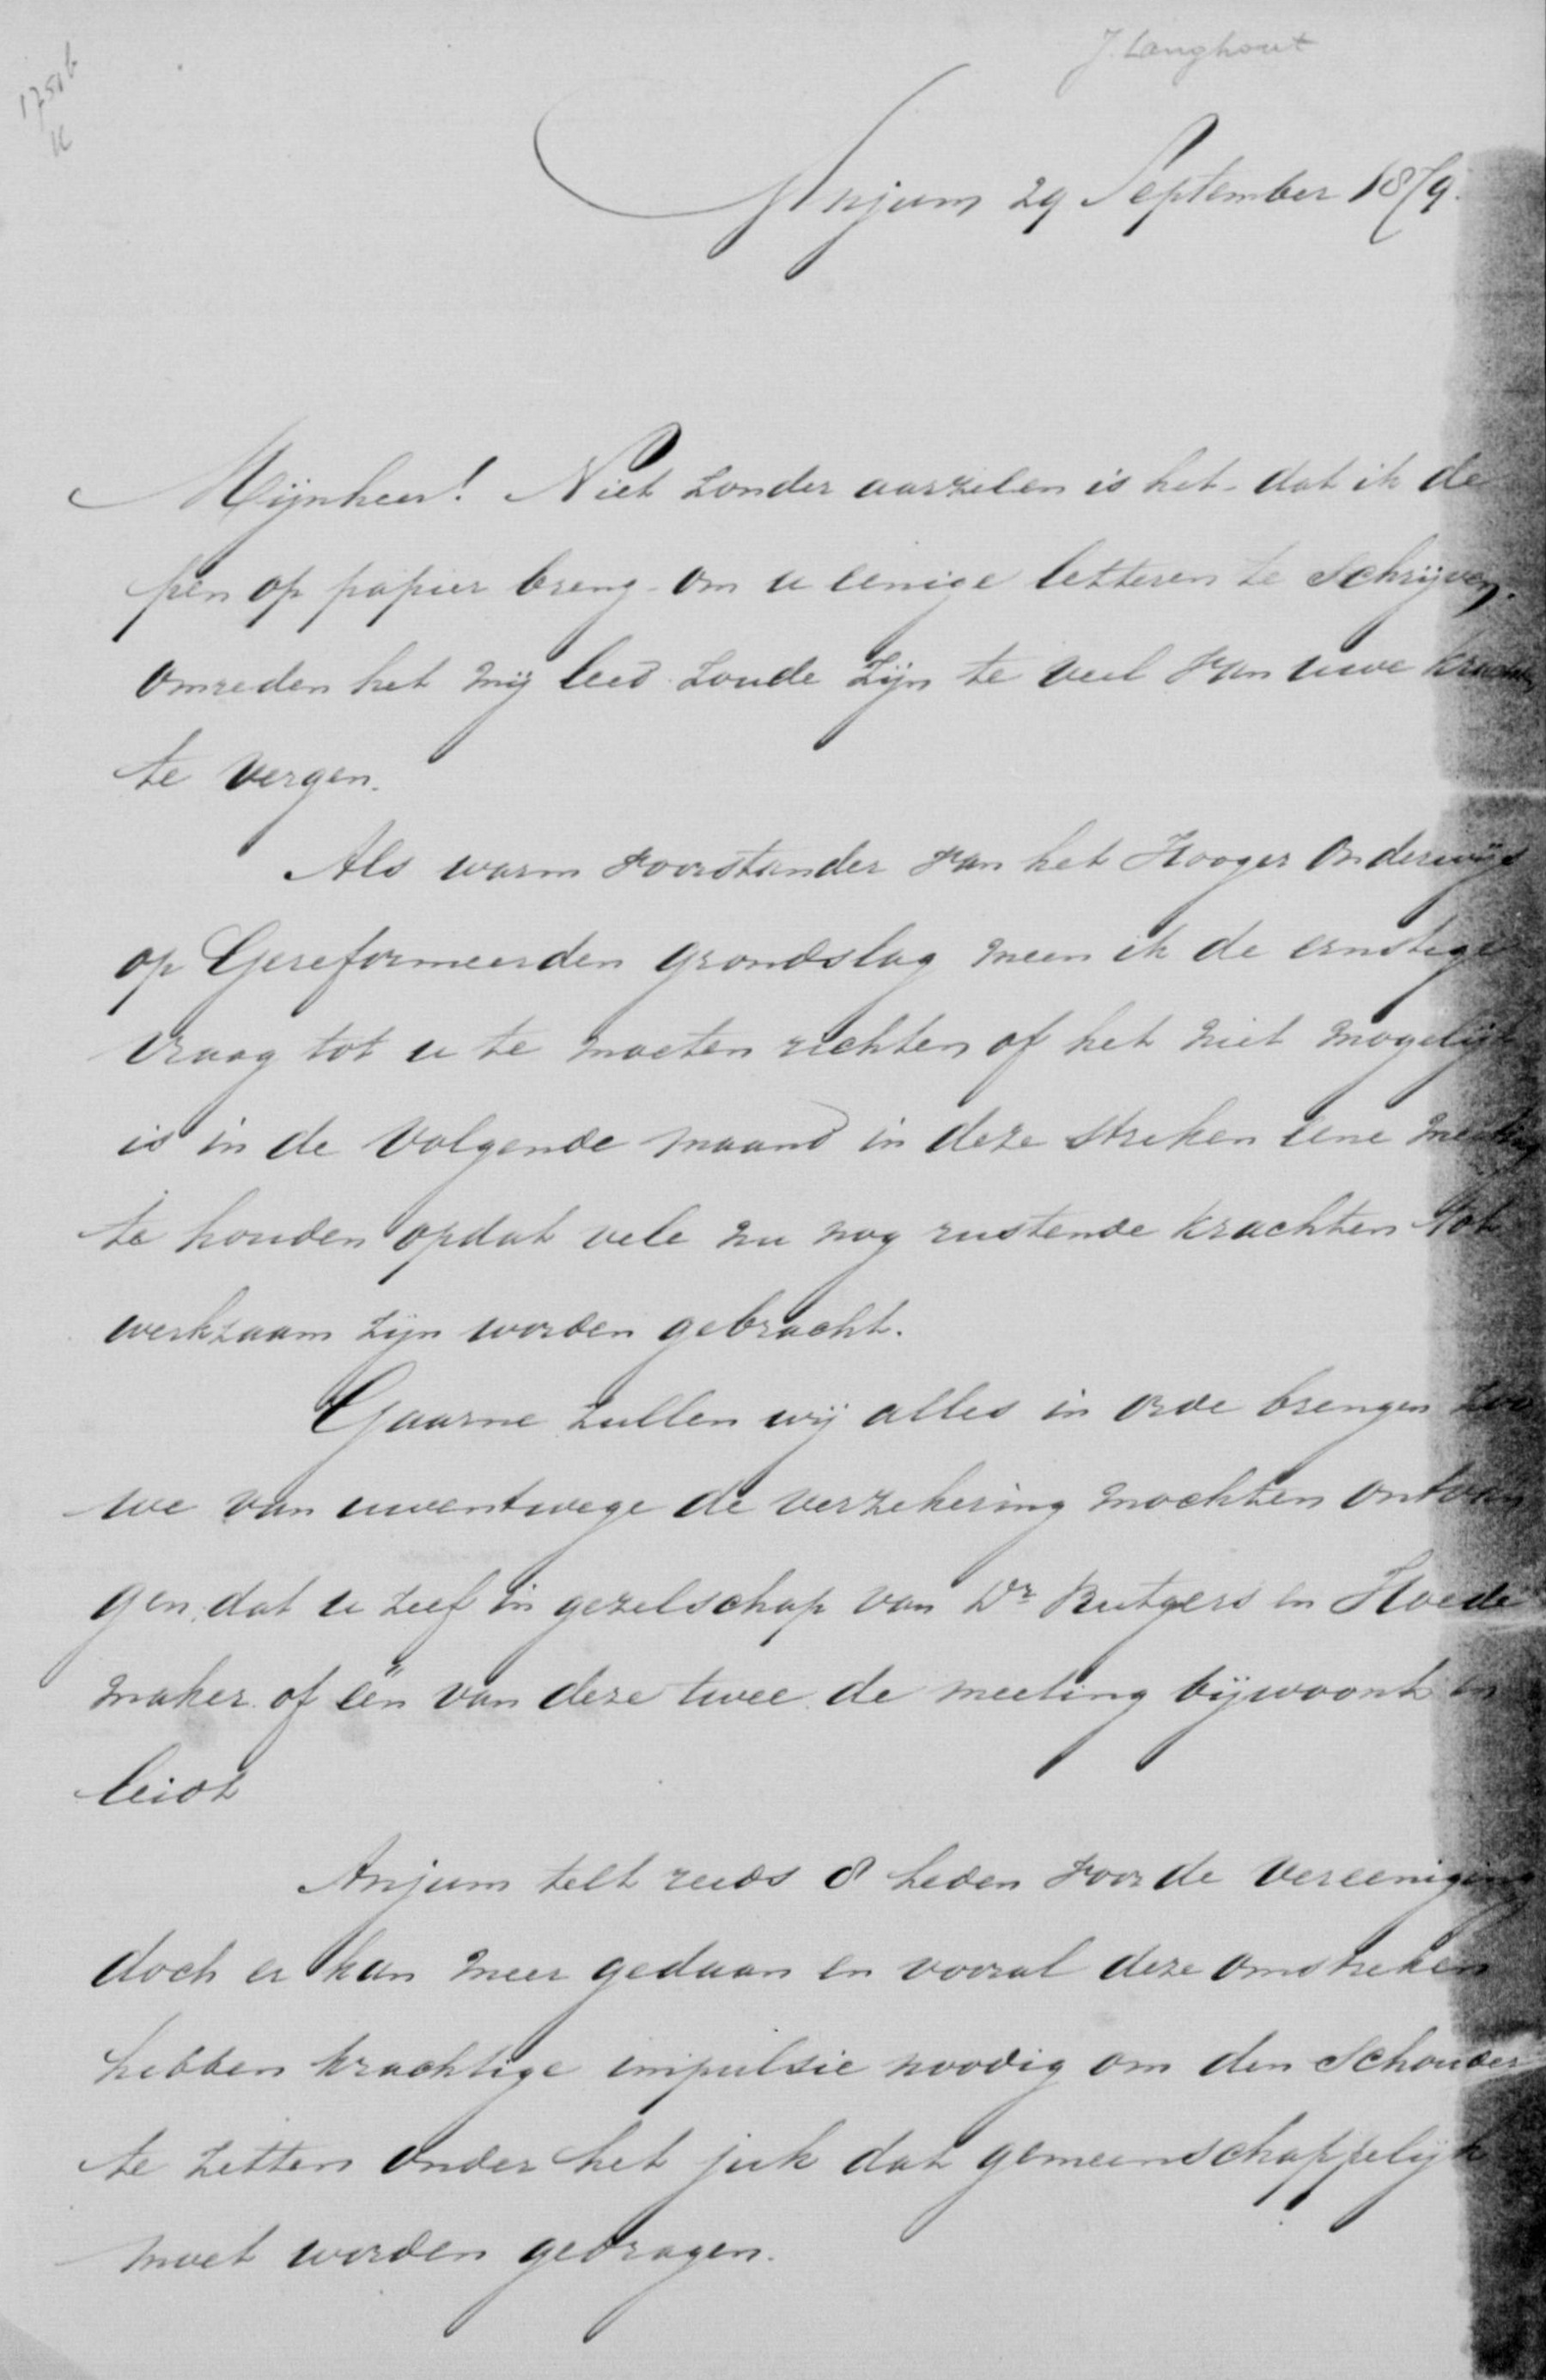 J. Langhout
1751b
K
Anjum 29 September 1879.
Mijnheer! Niet zonder aarzelen is het dat ik de
pen op papier breng om u eenige letteren te schrijven.
omreden het mij leed zoude zijn te veel van uwe krachten
te vergen.
Als warm voorstander van het Hooger Onderwijs
op Gereformeerden grondslag meen ik de ernstige
vraag tot u te moeten richten of het niet mogelijk
is in de volgende maand in deze streken eene meeting
te houden opdat vele nu nog rustende krachten tot
werkzaam zijn worden gebracht.
Gaarne zullen wij alles in orde brengen zoo
we van uwentwege de verzekering mochten ontvan
gen, dat u zelf in gezelschap van Dr Rutgers en Hoede
maker of één van deze twee de meeting bijwoont en
leidt
Anjum telt reeds 8 leden voor de vereeniging
doch er kan meer gedaan en vooral deze omstreken
hebben krachtige impulsie noodig om den schouder
te zetten onder het juk dat gemeenschappelijk
moet worden gedragen.